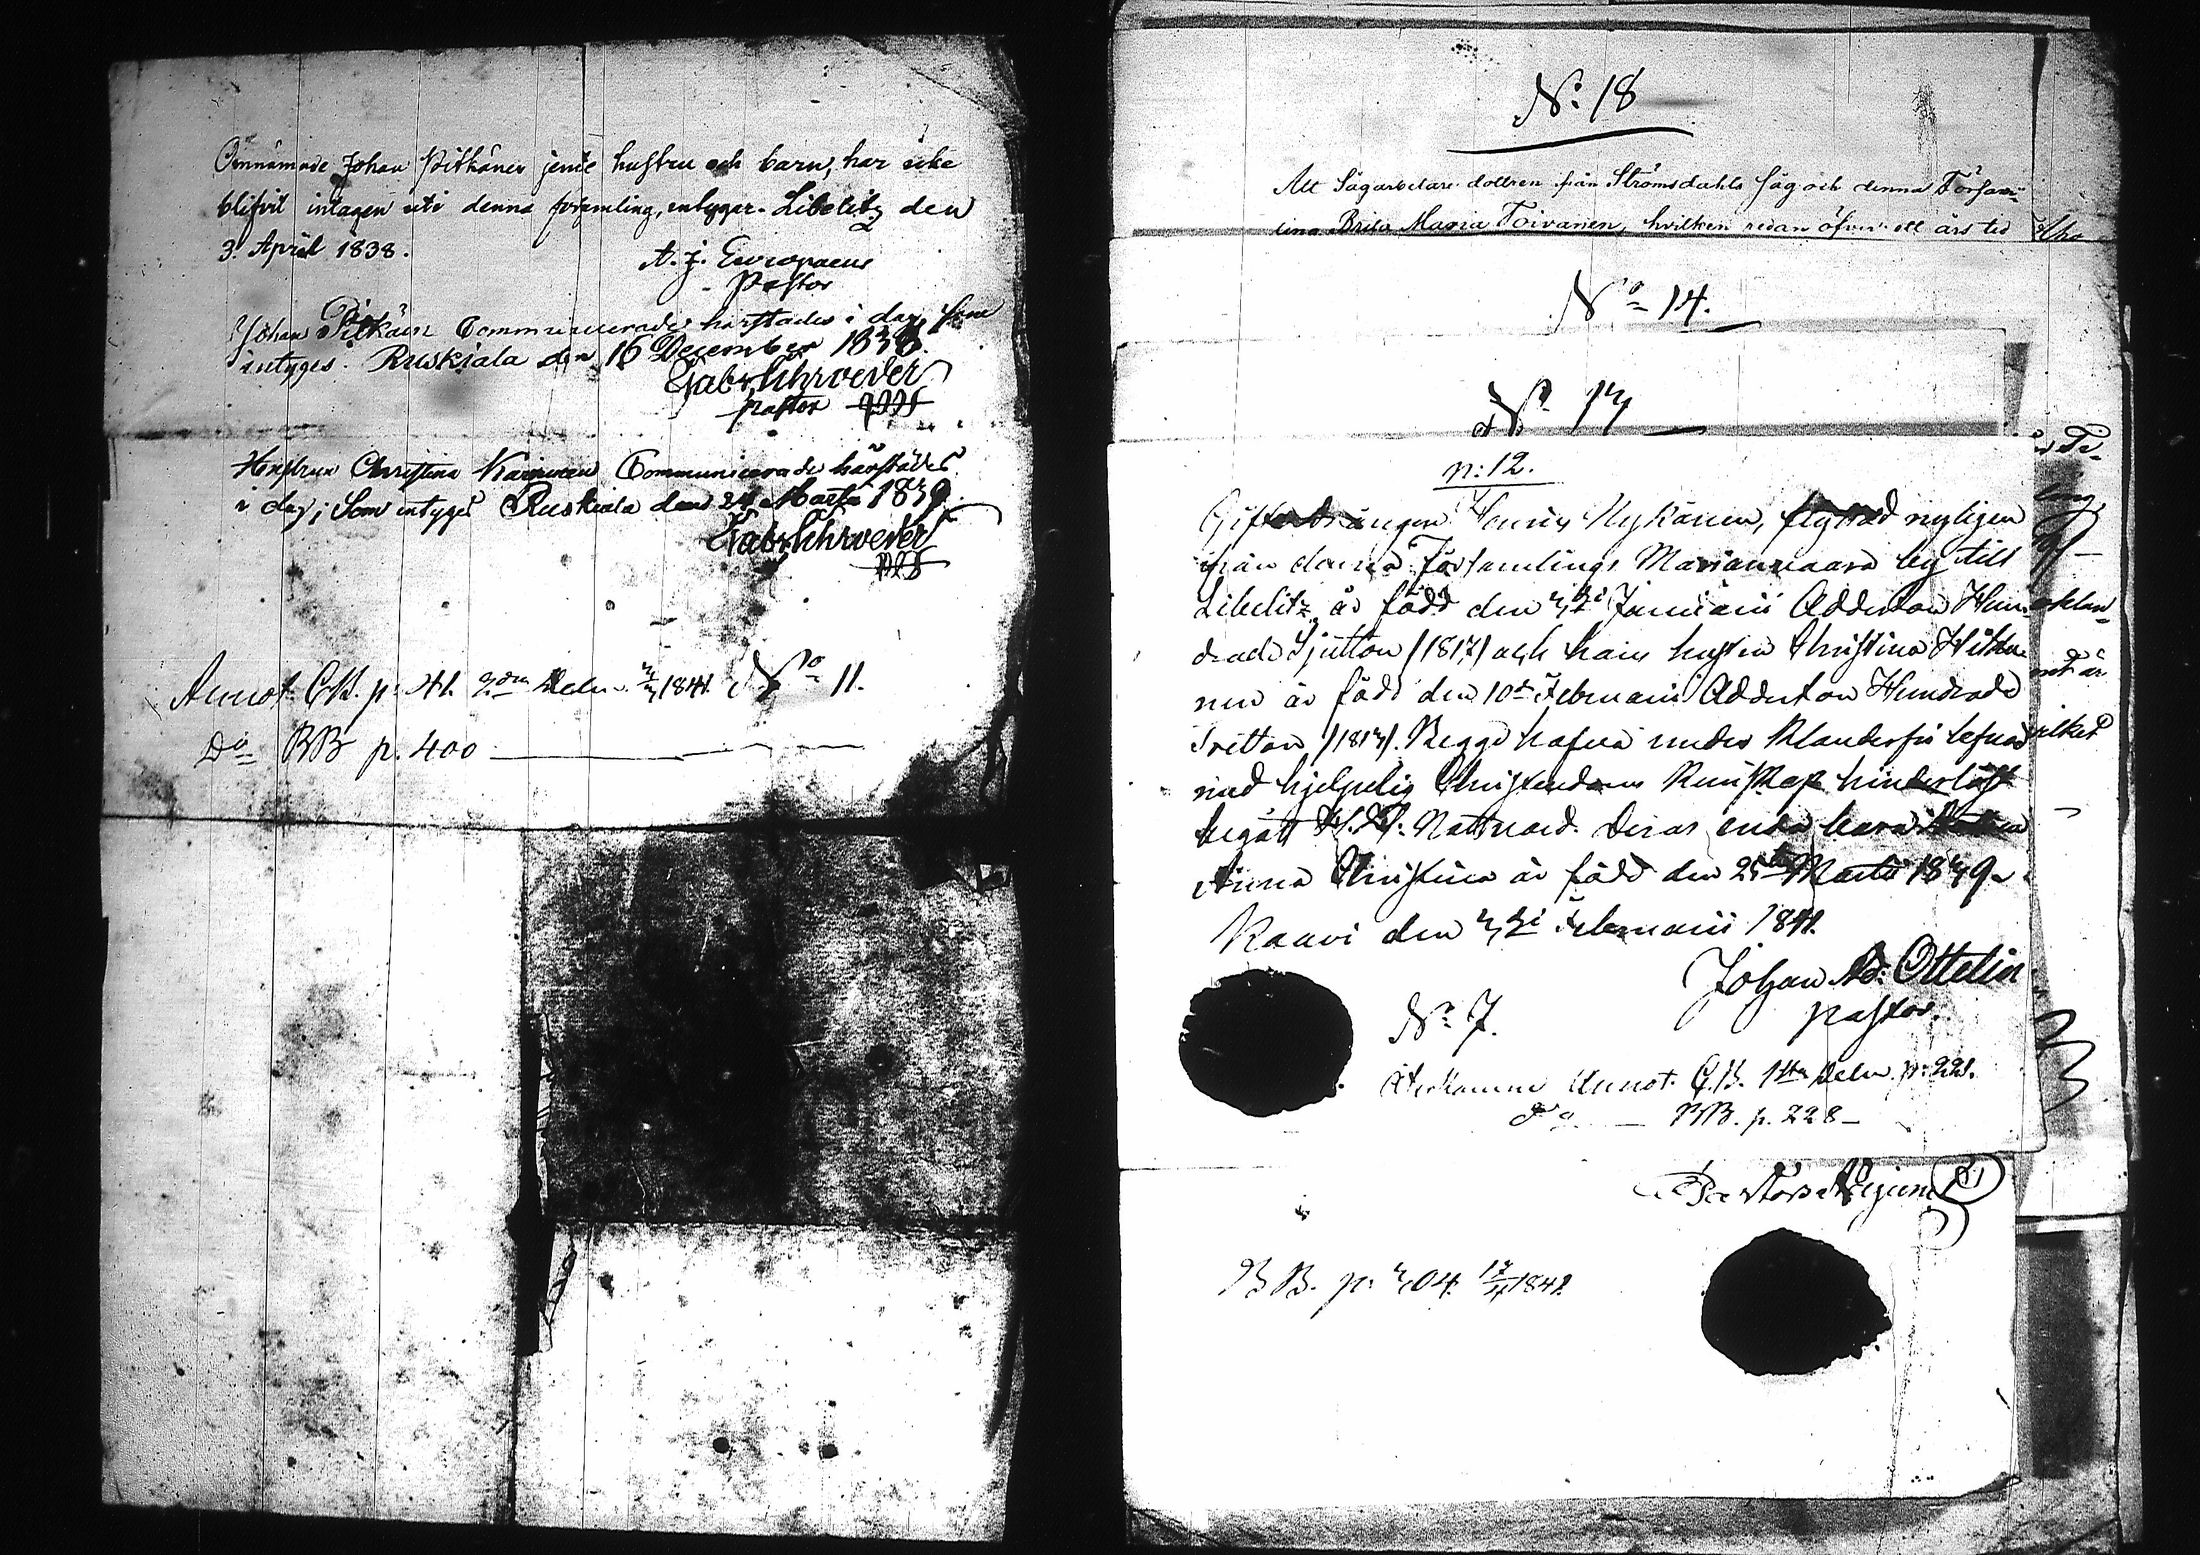 Omnämnde Johan Pitkänen jemte hustru och barn, har icke
blifvit intagen uti denna församling, intygar. Libelitz den
3. April 1838.
A. J. Europaeus
Pastor
Johan Pitkäin Communicerade härstädes i dag, som
intyges. Ruskiala den 16 December 1838.
Gabr Schroever
pastor
Hustrun Christina Communicerade härstädes
i dag; Som intyges Ruskiala den 24 Martii 1839.
Gabr Schroever
Annot. C.B. p: 41. 2dra Delen 1841. No 11.
Do BB p. 400
No 18
Att Sågarbetare dottren från Strömsdahls såg och denna Försam-
ling Brita Maria Toivanen, hvilken redan öfver ett års tid
No 14.
No 17
n: 12.
Nykänen, nyligen
från denna Församlings Marianvaara by till
Libelitz, är född den 3di Januarii Adderton Hun-
drade Sjutton (1817) och hans hustru Christina
nen är född den 10de Februarii Adderton Hundrade
Tretton (1813). Begge hafva under klanderfri lefnad
med hjelpelig Christendoms kunskap hinderlöst
begått H. H. Nattvard. Deras enda barn
Anna Christina är född den 25te Martii 1839.
Kaavi den 3di Februarii 1841.
Johan Ad: Ottelin
pastor.
No 7.
Återkomne Annot. C.B. 1sta Delen p: 221.
do — BB. p. 228 —
BB. p: 304. 1841.